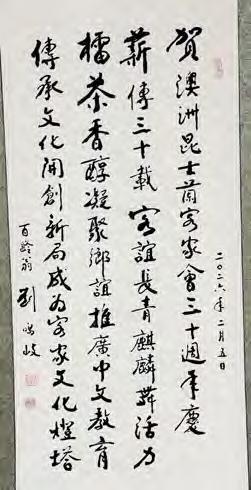 賀澳洲昆士蘭客家會三十週年慶
薪傳三十載客誼長青麒麟舞活力
擂茶香醇凝聚鄉誼推廣中文教育
傳承文化開創新局成為客家文化燈塔
二〇二六年二月五日
百齡翁 劉